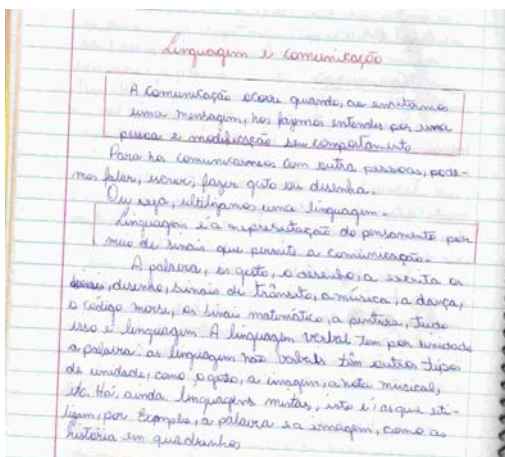 Linguagem é comunicação
A comunicação ocorre quando, ao emitirmos
uma mensagem, nos fazemos entender por uma
pessoa e modificação seu comportamento
Para nos comunicarmos com outra pessoas, pode-
mos falar, escrever, fazer gesto ou desenha.
Ou seja, ultilizamos uma linguagem.
Linguagem é a representação do pensamento por
meio de sinais que permite a comunicação.
A palavra, os gesto, o desenho, a escrita os
desenho, sinais de trânsito, a música, a dança,
o código morse, os sinais matemático, a pintura, tudo
isso é linguagem A linguagem verbal tem por unidade
a palavra: as linguagem não verbals têm outros tipos
de unidade, como o gesto, a imagem, a nota musical,
etc. Há, ainda linguagens mistas, isto é, as que uti-
lizam, por Exemplo, a palavra e a imagem, como as
história em quadrinhos